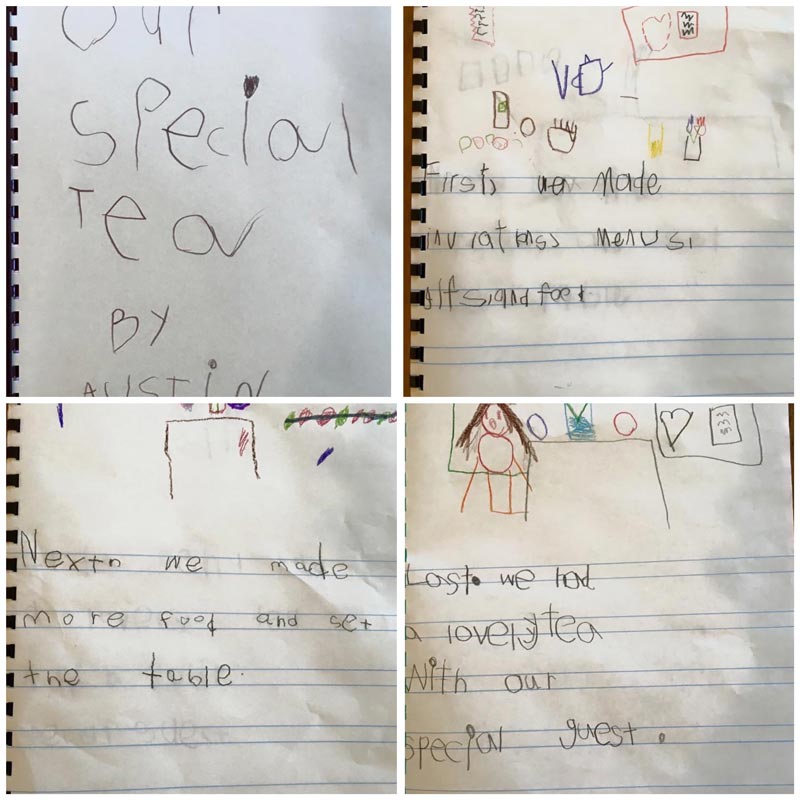 our
special
Tea
BY
AUSTIN
First, we Made
invratings Menusi
and food
Nextn we made
more food and set
the table.
Last. we had
a lovely tea
With our
special guest.